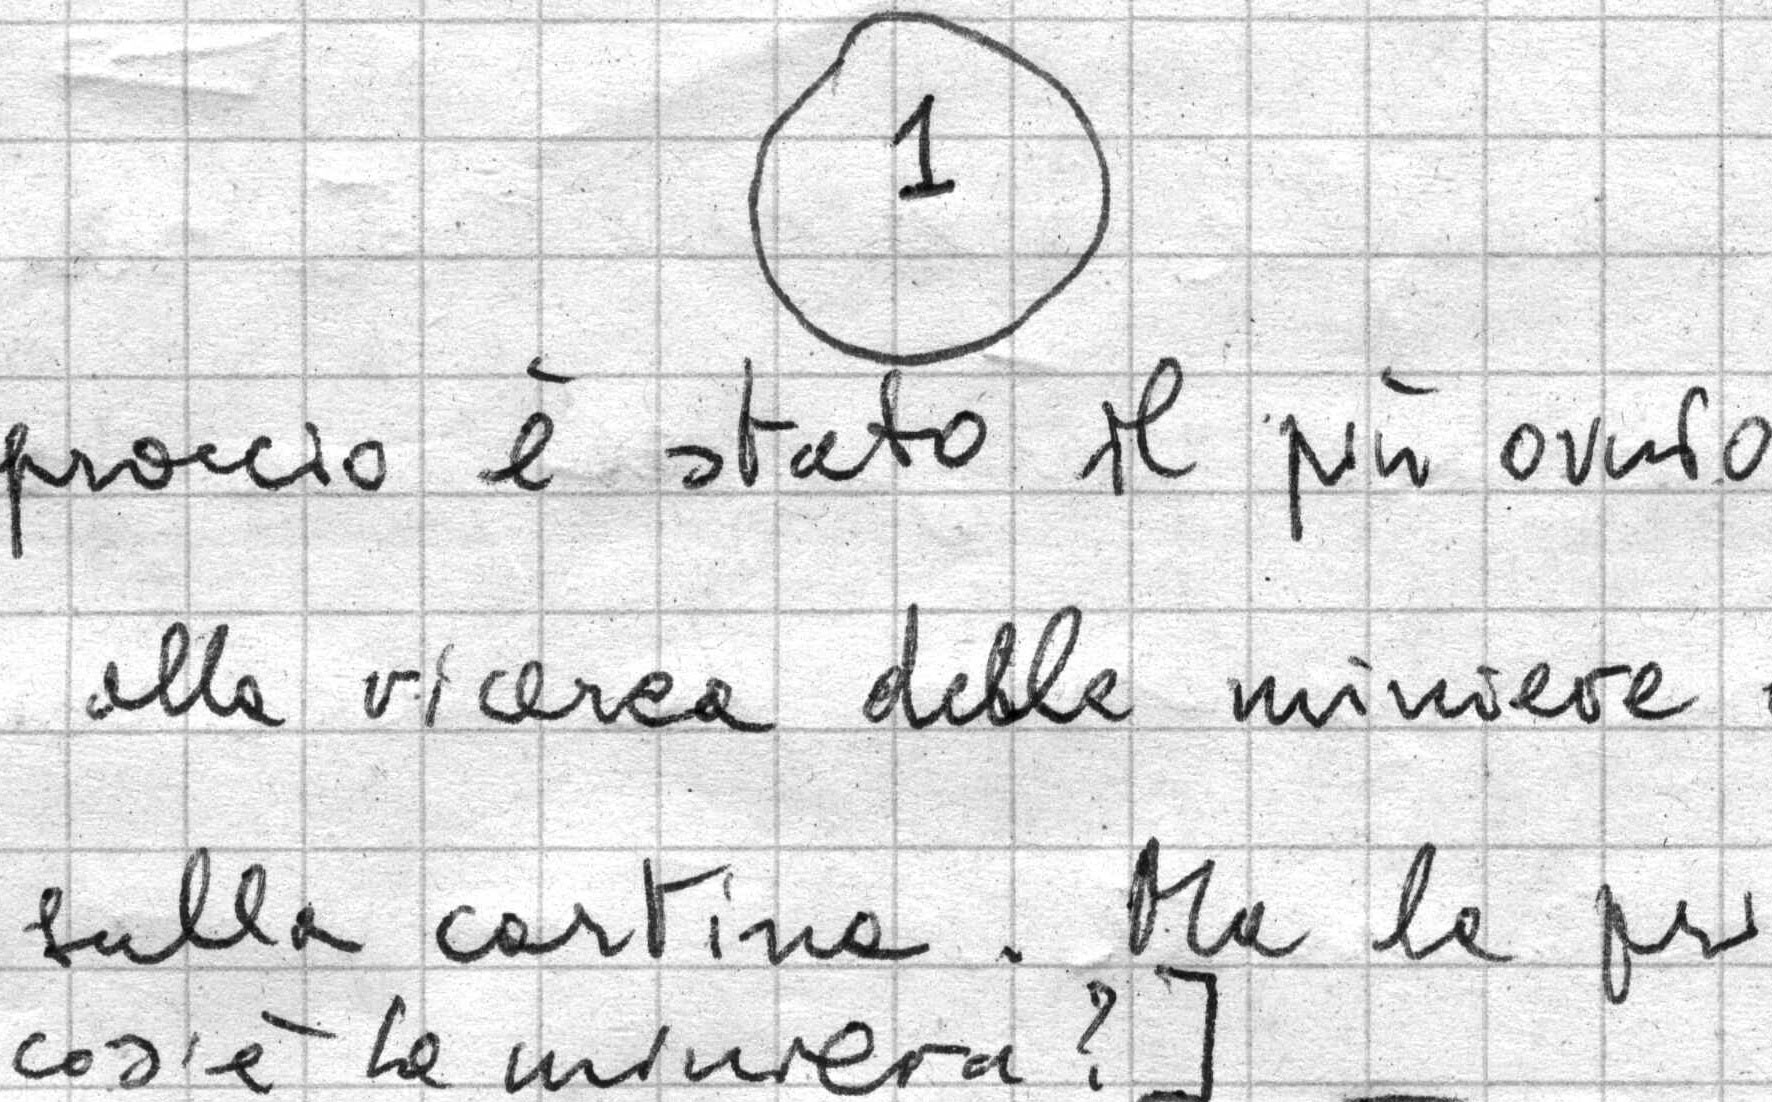 1
proccio è stato il più ovvio
alla ricerca delle miniere
sulla cartina. Ma la pri
cos'è la miniera?]